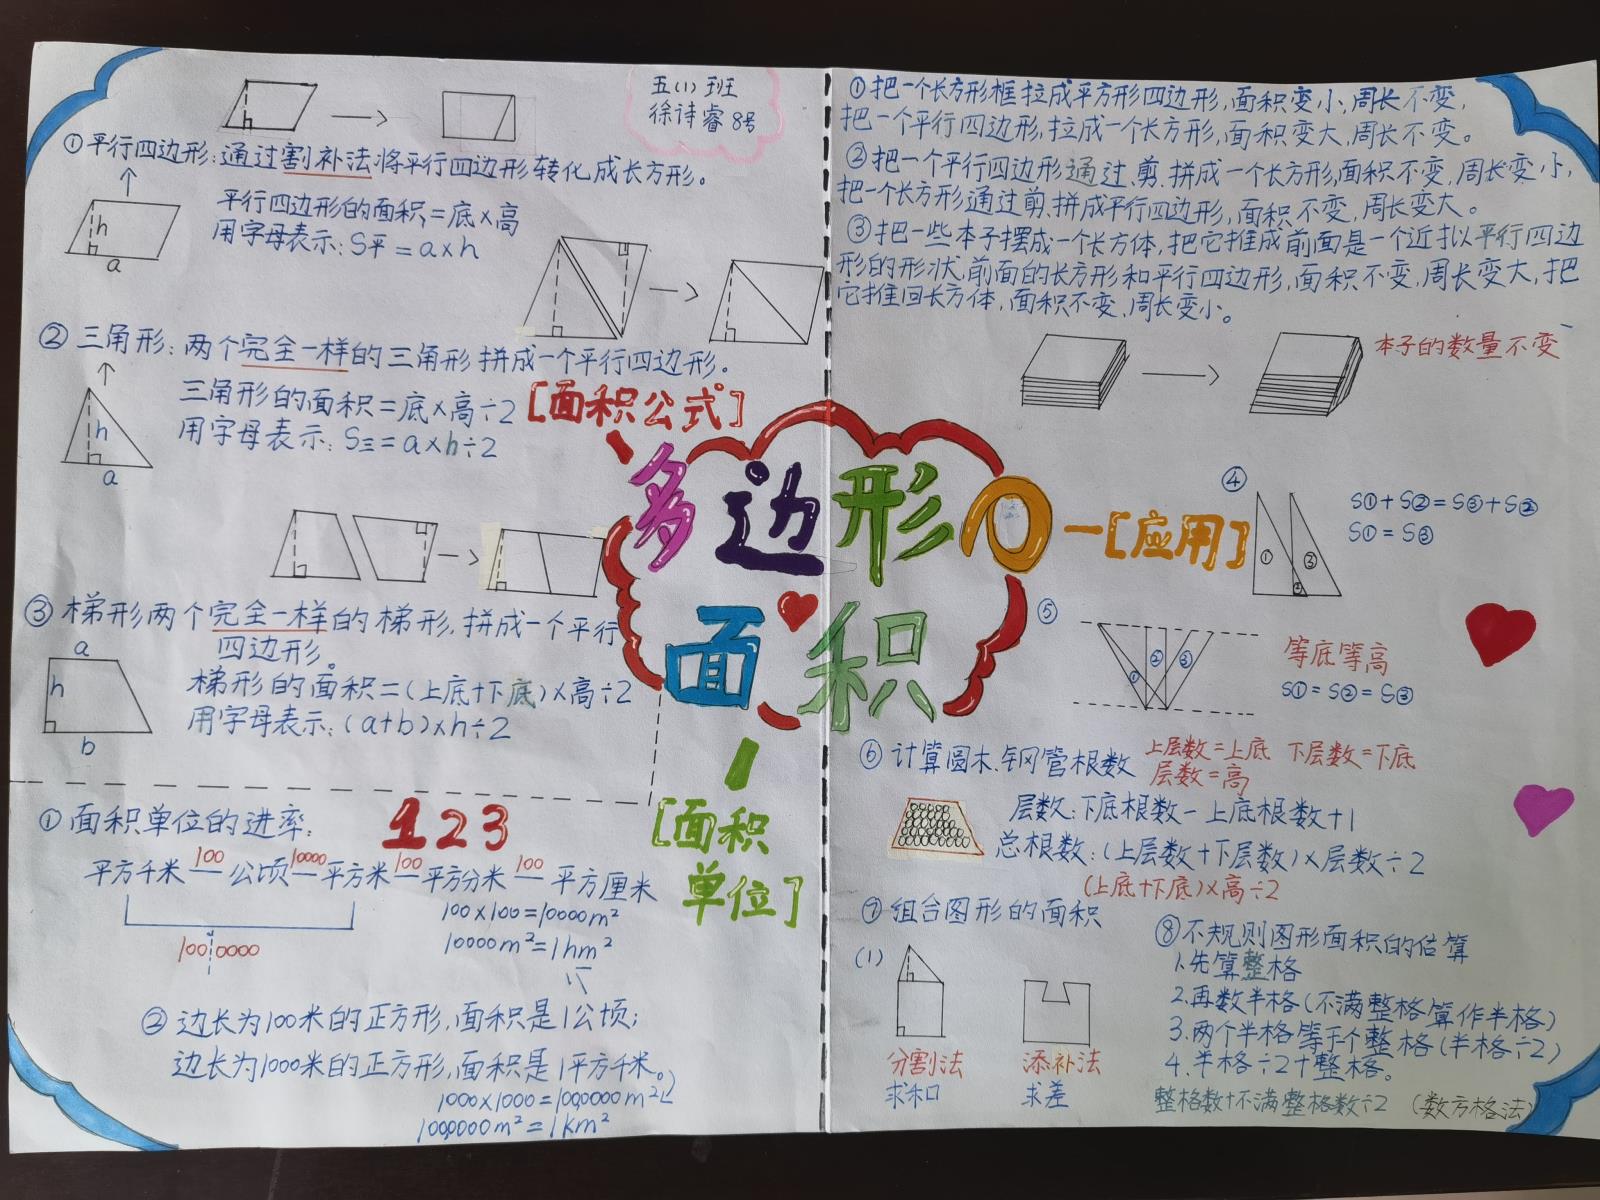 五(1)班
徐诗睿8号
h
①平行四边形:通过割补法将平行四边形转化成长方形。
平行四边形的面积=底×高
用字母表示:S平=a×h
h
a
②三角形:两个完全一样的三角形拼成一个平行四边形。
三角形的面积=底×高÷2
用字母表示:S三=a×h÷2
h
a
③梯形两个完全一样的梯形,拼成一个平行
四边形。
梯形的面积=(上底+下底)×高÷2
用字母表示:(a+b)×h÷2
a
h
b
[面积公式]
多边形的
面积
[应用]
[面积
单位]
①面积单位的进率:
123
平方千米 100 公顷 10000 平方米 100 平方分米 100 平方厘米
100 0000
100×100=10000m²
10000m²=1hm²
②边长为100米的正方形,面积是1公顷;
边长为1000米的正方形,面积是1平方千米。
1000×1000=1000000m²
1000000m²=1km²
①把一个长方形框拉成平方形四边形,面积变小,周长不变,
把一个平行四边形,拉成一个长方形,面积变大,周长不变。
②把一个平行四边形通过、剪、拼成一个长方形,面积不变,周长变小,
把一个长方形通过剪、拼成平行四边形,面积不变,周长变大。
③把一些本子摆成一个长方体,把它推成前面是一个近拟平行四边
形的形状,前面的长方形和平行四边形,面积不变,周长变大,把
它推回长方体,面积不变、周长变小。
本子的数量不变
④
① ② ③
S①+S②=S③+S②
S①=S③
⑤
① ② ③
等底等高
S①=S②=S③
⑥计算圆木、钢管根数
上层数=上底 下层数=下底
层数=高
层数:下底根数-上底根数+1
总根数:(上层数+下层数)×层数÷2
(上底+下底)×高÷2
⑦组合图形的面积
(1)
分割法
求和
添补法
求差
⑧不规则图形面积的估算
1.先算整格
2.再数半格(不满整格算作半格)
3.两个半格等于个整格(半格÷2)
4.半格÷2+整格。
整格数+不满整格数÷2 (数方格法)